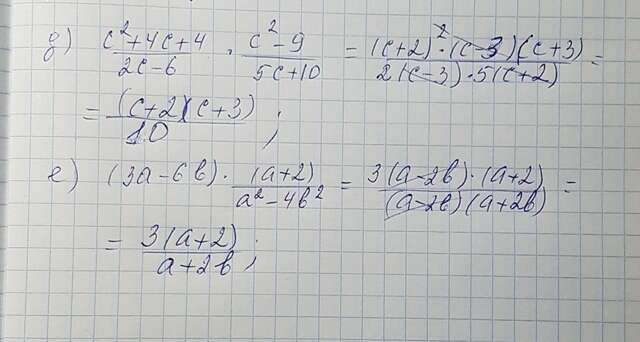 д) (c²+4c+4)/(2c-6) · (c²-9)/(5c+10) = ((c+2)²·(c-3)(c+3))/(2(c-3)·5(c+2)) =
= ((c+2)(c+3))/10 ;
е) (3a-6b)· (a+2)/(a²-4b²) = (3(a-2b)·(a+2))/((a-2b)(a+2b)) =
= (3(a+2))/(a+2b) ;